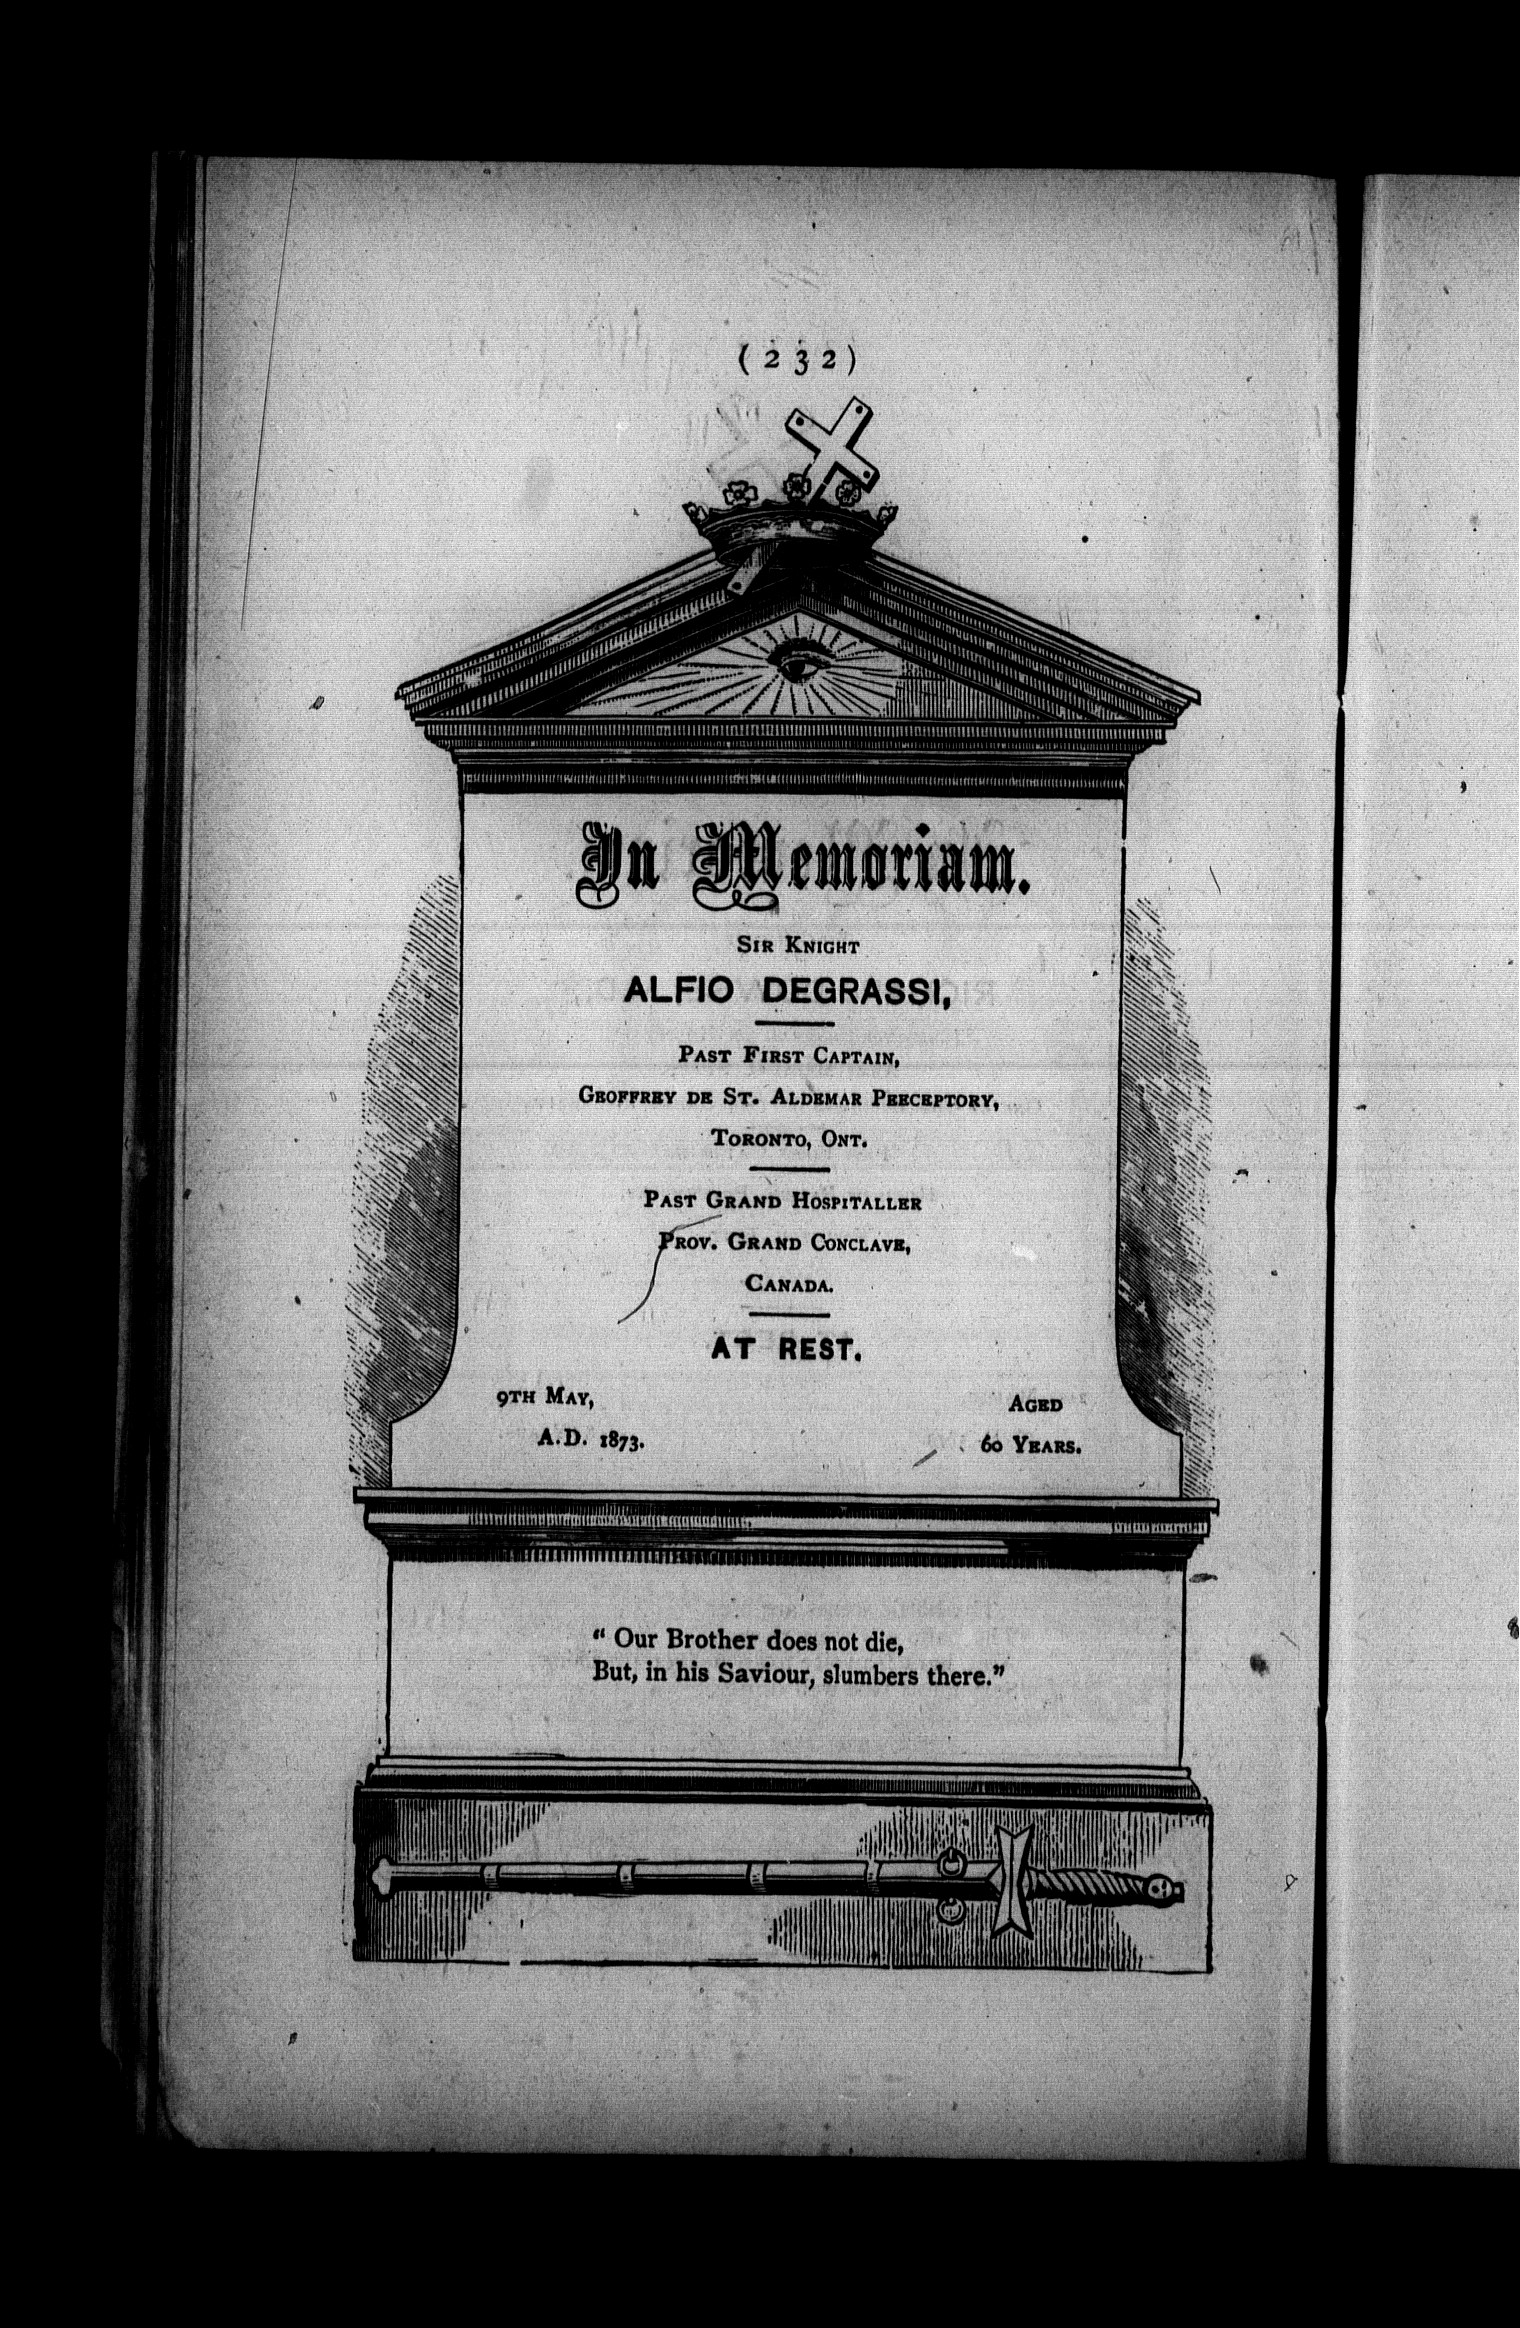 (232)
In Memoriam.
SIR KNIGHT
ALFIO DEGRASSI,
PAST FIRST CAPTAIN,
GEOFFREY DE ST. ALDEMAR PEECEPTORY,
TORONTO, ONT.
PAST GRAND HOSPITALLER
PROV. GRAND CONCLAVE,
CANADA.
AT REST.
9TH MAY,
A.D. 1873.
AGED
60 YEARS.
" Our Brother does not die,
But, in his Saviour, slumbers there."